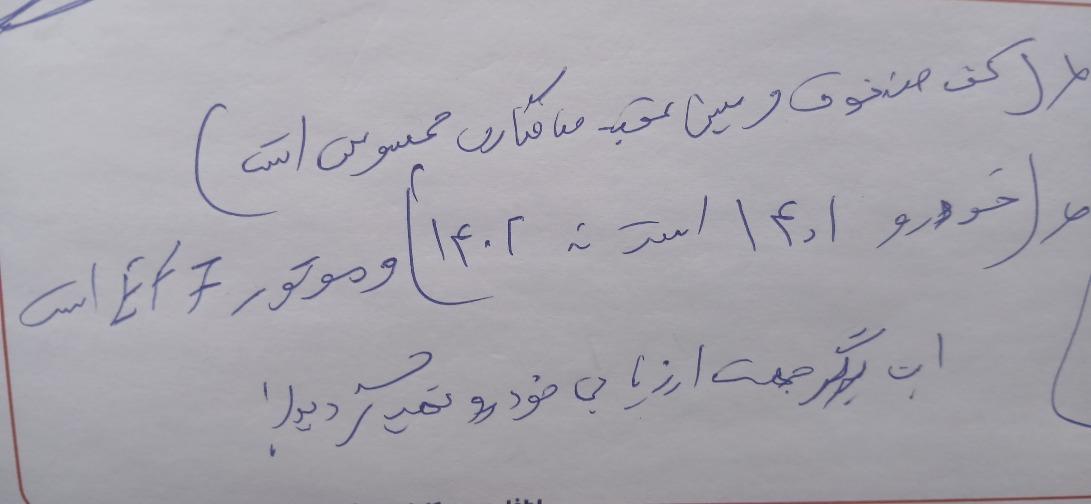 * (کف صندوق و سینی عقب صافکاری محسوس است)
* (خودرو ۱۴۰۱ است نه ۱۴۰۲) و موتور EF7 است
جهت ارزیابی خودرو گردید!